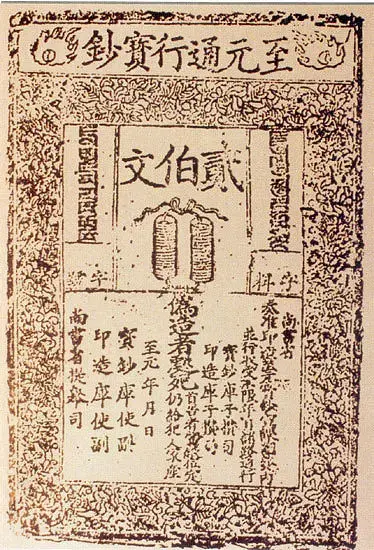 至元通行寶鈔
貳伯文
字料
尚書省
奏准印造至元寶鈔宣課差役內
並行收受不限年月諸路通行
寶鈔庫子攢司
印造庫子攢司
偽造者處死
首告者賞銀伍定
仍給犯人家產
至元年月日
寶鈔庫使副
印造庫使副
尚書省提舉司